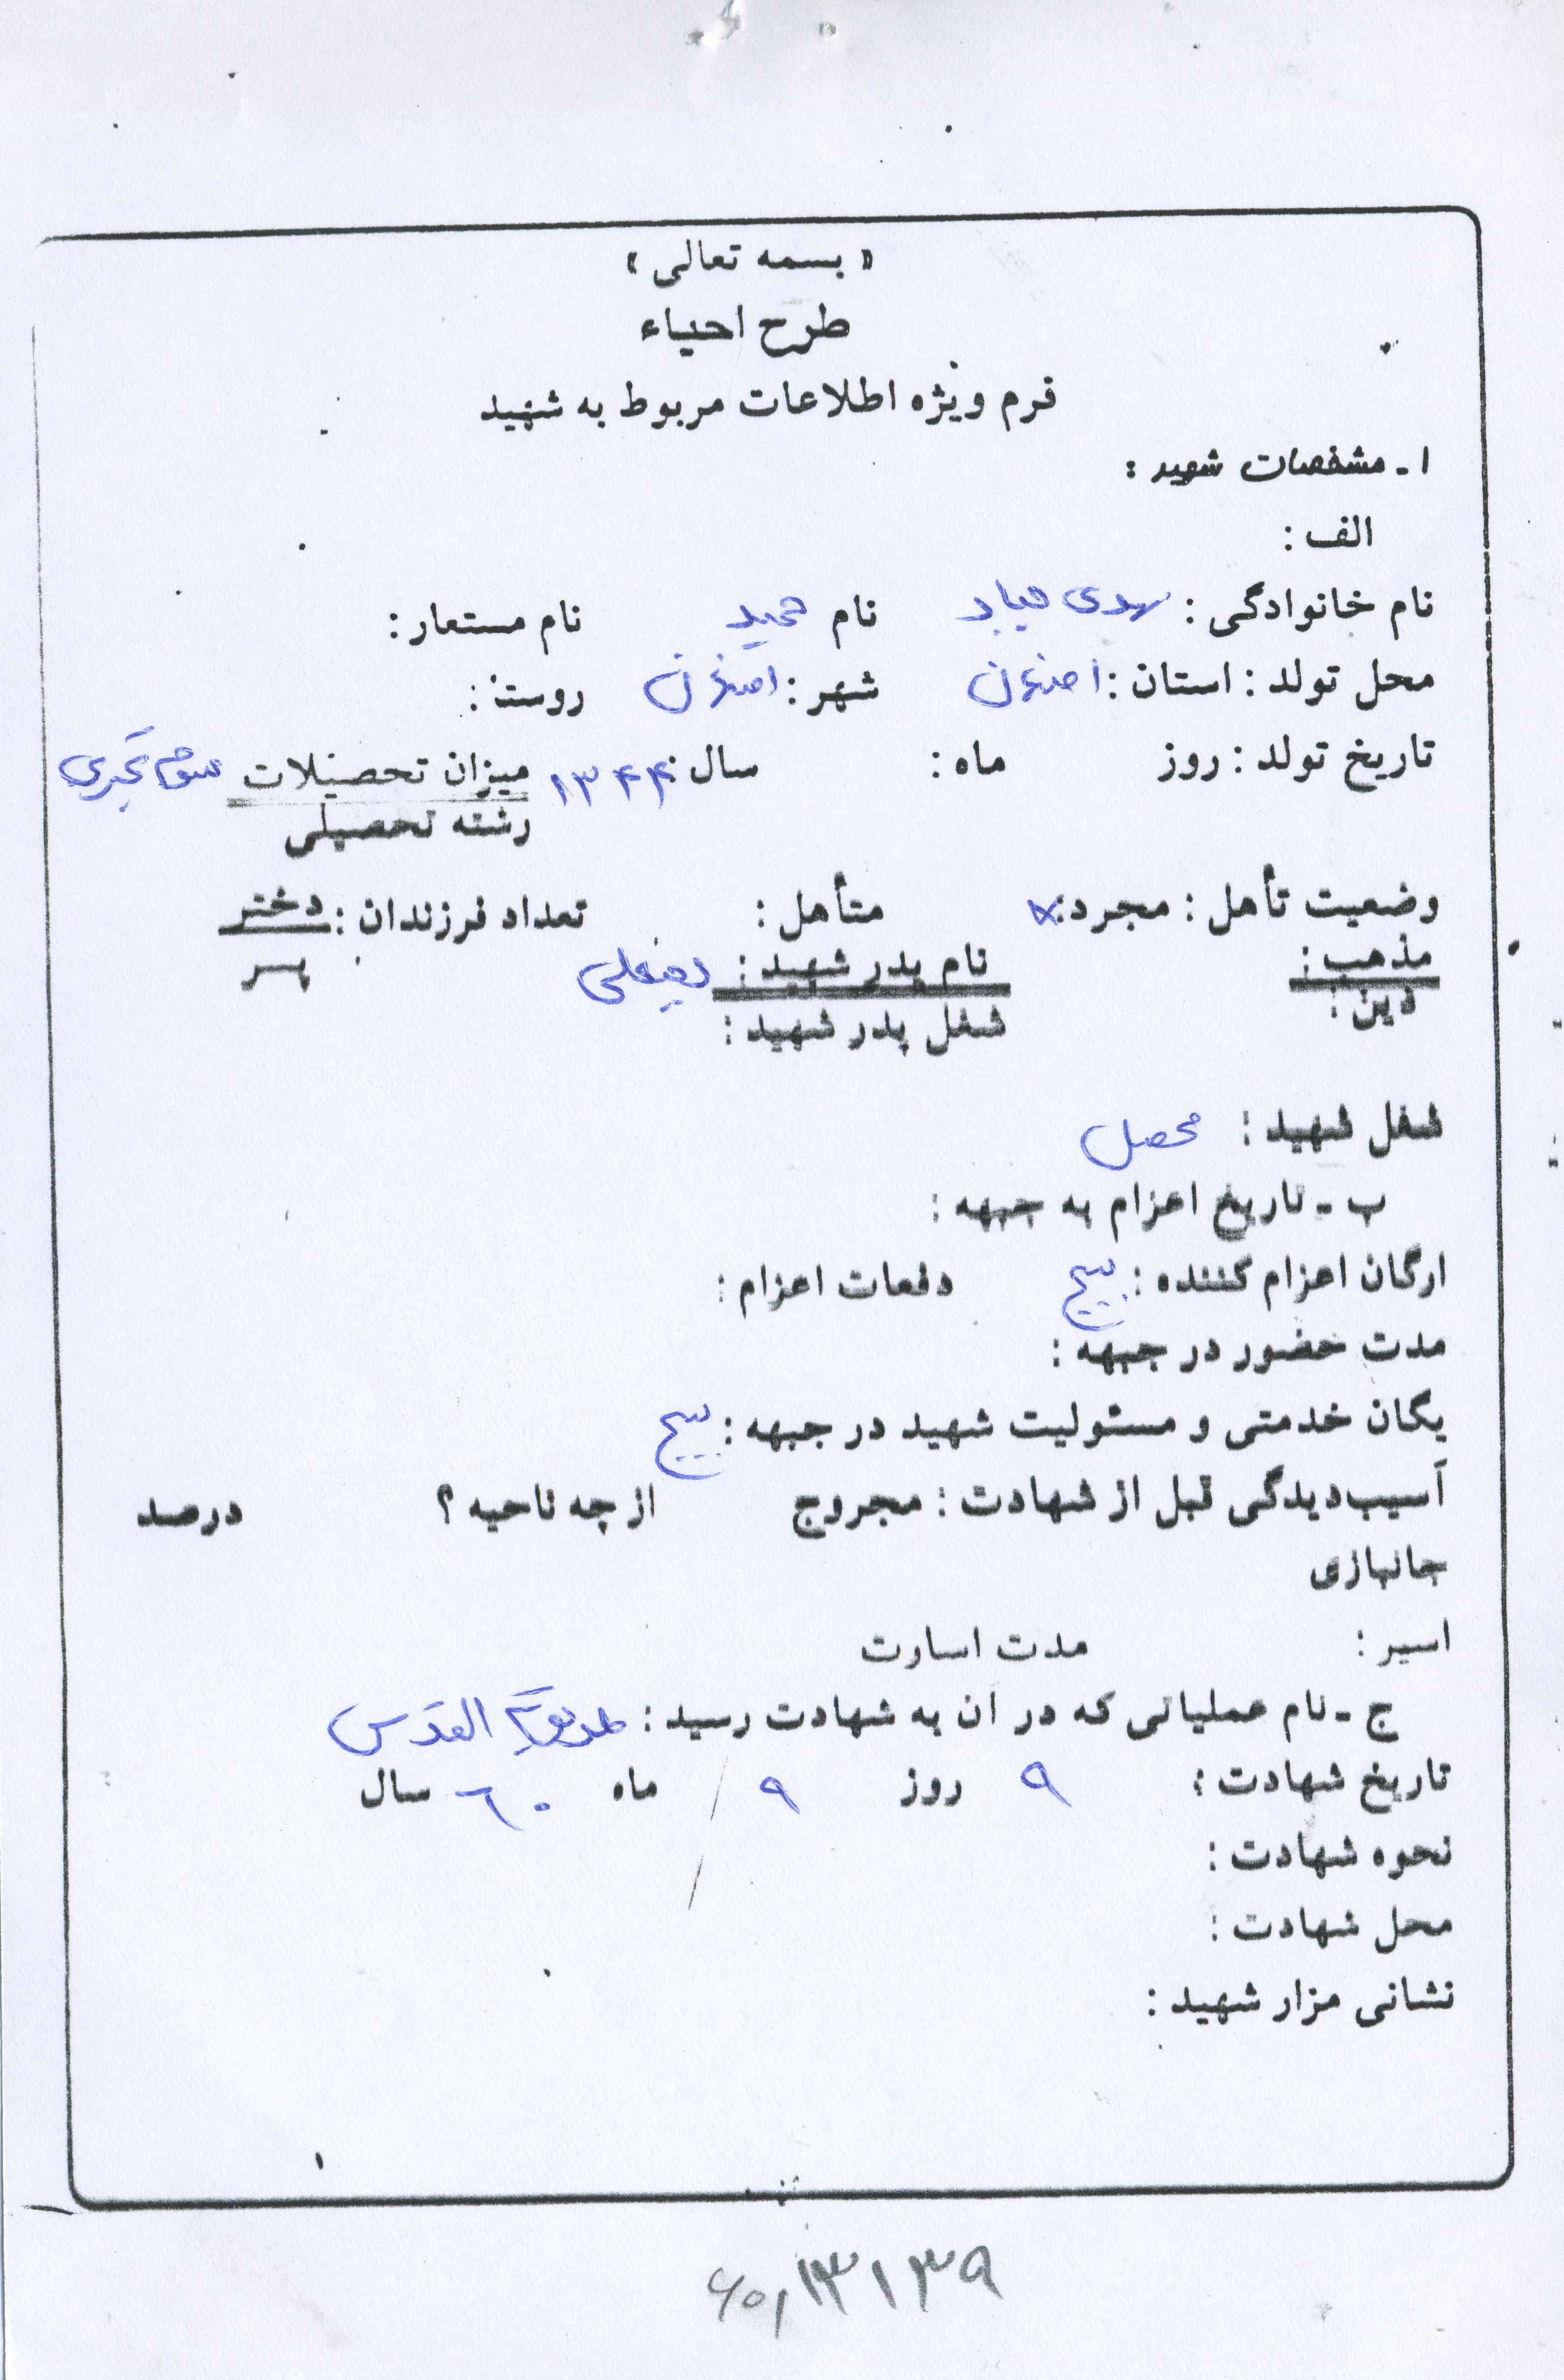 « بسمه تعالی »
طرح احیاء
فرم ویژه اطلاعات مربوط به شهید
۱ـ مشخصات شهید :
الف :
نام خانوادگی : مهدی میاب نام حمید نام مستعار :
محل تولد : استان : اصفهان شهر : اصفهان روستا :
تاریخ تولد : روز ماه : سال : ۱۳۴۴ میزان تحصیلات سوم تجربی
رشته تحصیلی
وضعیت تأهل : مجرد : × متأهل : تعداد فرزندان : دختر
پسر
مذهب : نام پدر شهید :
دین : شغل پدر شهید :
شغل شهید : محصل
ب ـ تاریخ اعزام به جبهه :
ارگان اعزام کننده : بسیج دفعات اعزام :
مدت حضور در جبهه :
یگان خدمتی و مسئولیت شهید در جبهه : بسیج
آسیب‌دیدگی قبل از شهادت : مجروح از چه ناحیه ؟ درصد
جانبازی
اسیر : مدت اسارت
ج ـ نام عملیاتی که در آن به شهادت رسید : طریق القدس
تاریخ شهادت : ۹ روز ۹ ماه ۶۰ سال
نحوه شهادت :
محل شهادت :
نشانی مزار شهید :